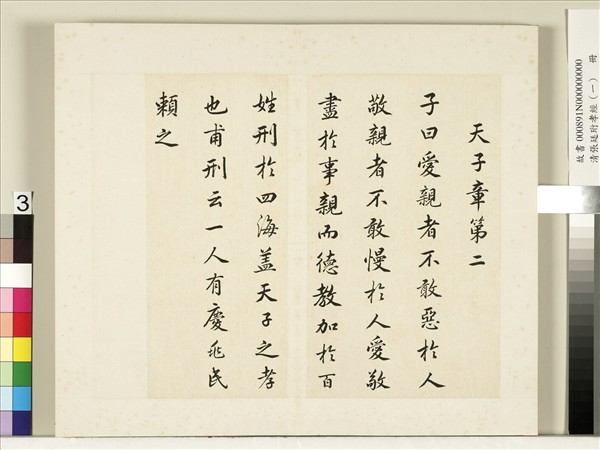 天子章第二
子曰愛親者不敢惡於人
敬親者不敢慢於人愛敬
盡於事親而德教加於百
姓刑於四海蓋天子之孝
也甫刑云一人有慶兆民
賴之
故書 000891N000000000
清張廷珩孝經(一) 冊
3